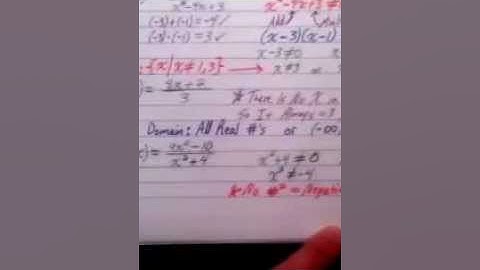 x²-4x+3 x²-4x+3 ≠
(-3)+(-1) = -4 ✓ Add
(-3)·(-1) = 3 ✓ (x-3)(x-1)
x-3≠0
{x|x≠1,3} → x≠3 or
)= 4x+2 / 3 * There Is No X
So It Always = 3
Domain: All Real #'s or (-∞
)= 4x²-10 / x²+4 x²+4 ≠ 0
x² ≠ -4
* No #² = Negative